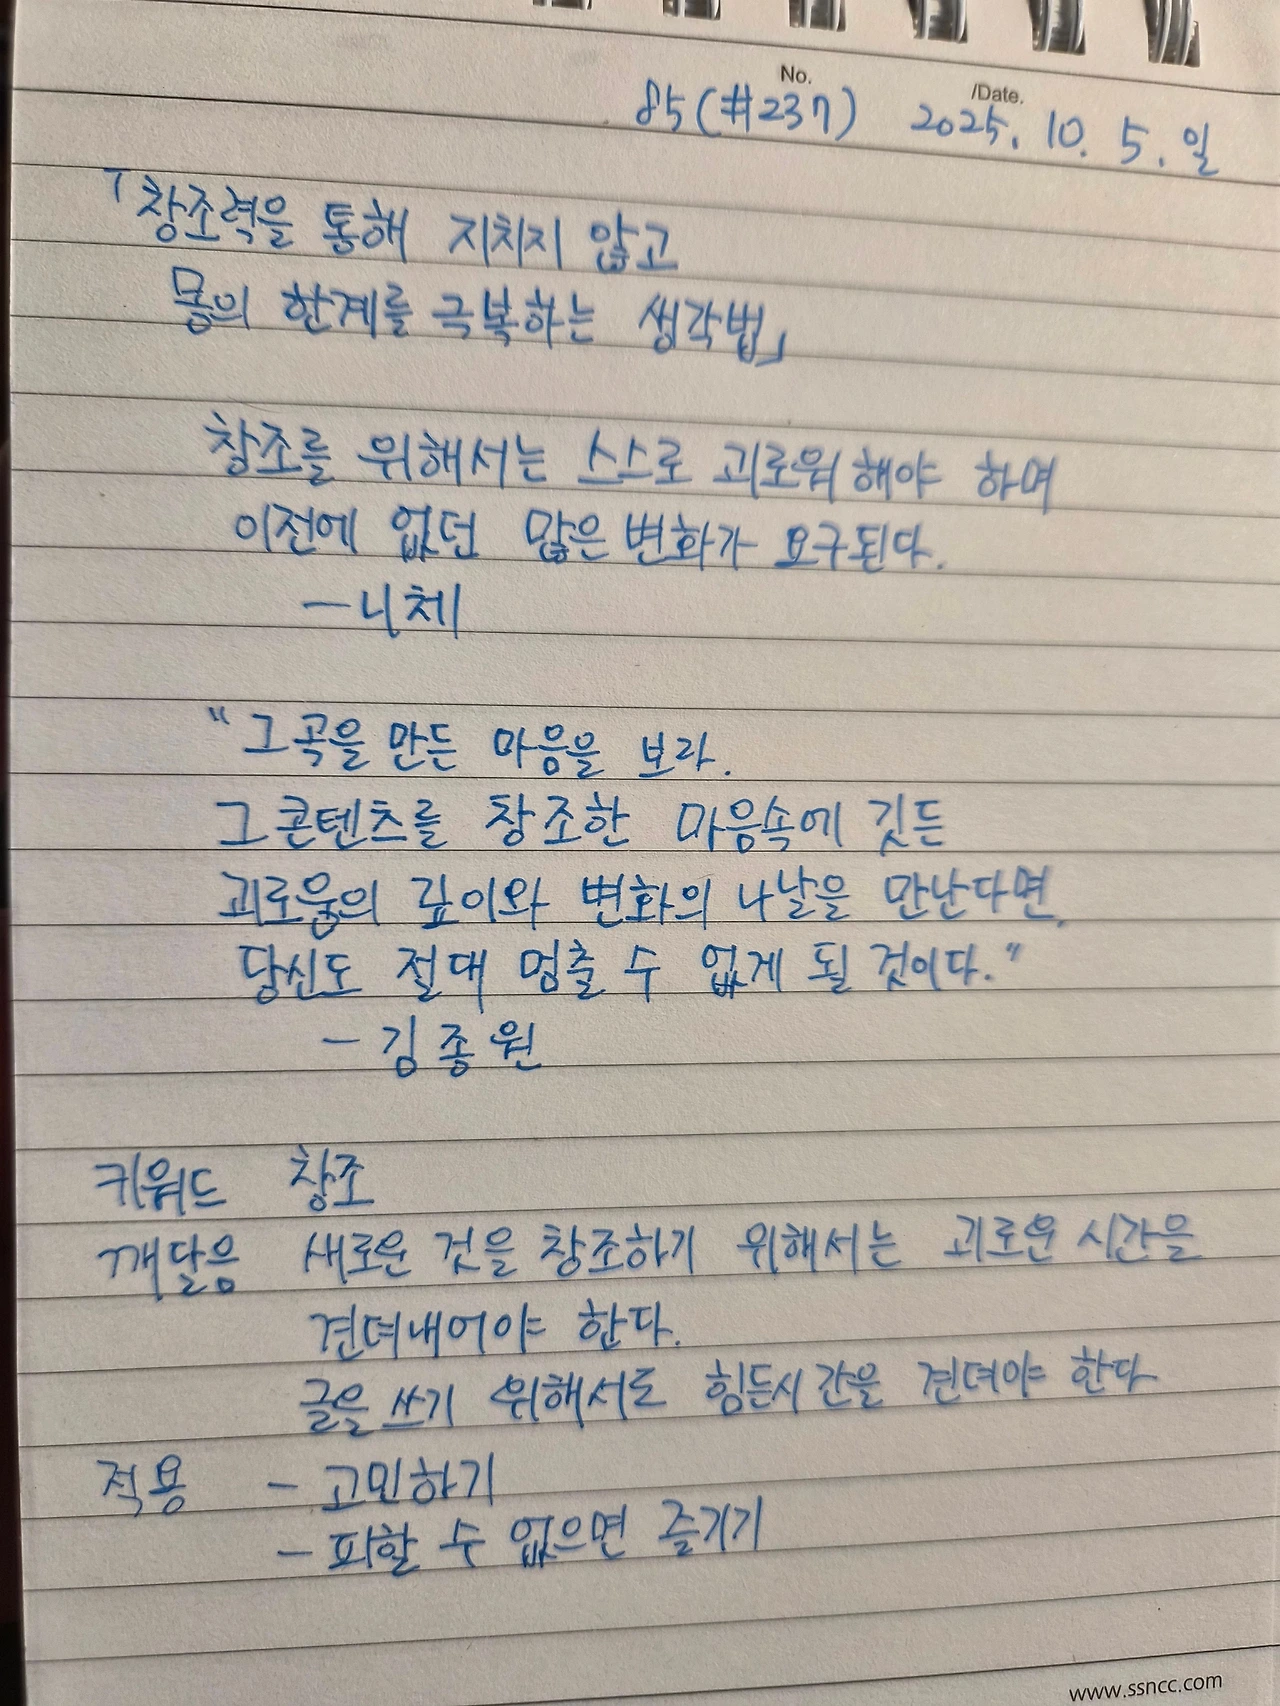 No.
/Date.
85(#237) 2025. 10. 5. 일
「창조력을 통해 지치지 않고
몸의 한계를 극복하는 생각법」
창조를 위해서는 스스로 괴로워해야 하며
이전에 없던 많은 변화가 요구된다.
—니체
"그 곡을 만든 마음을 보라.
그 콘텐츠를 창조한 마음속에 깃든
괴로움의 깊이와 변화의 나날을 만난다면,
당신도 절대 멈출 수 없게 될 것이다."
- 김종원
키워드 창조
깨달음 새로운 것을 창조하기 위해서는 괴로운 시간을
견뎌내어야 한다.
글을 쓰기 위해서도 힘든시간을 견뎌야 한다
적용 - 고민하기
- 피할 수 없으면 즐기기
www.ssncc.com